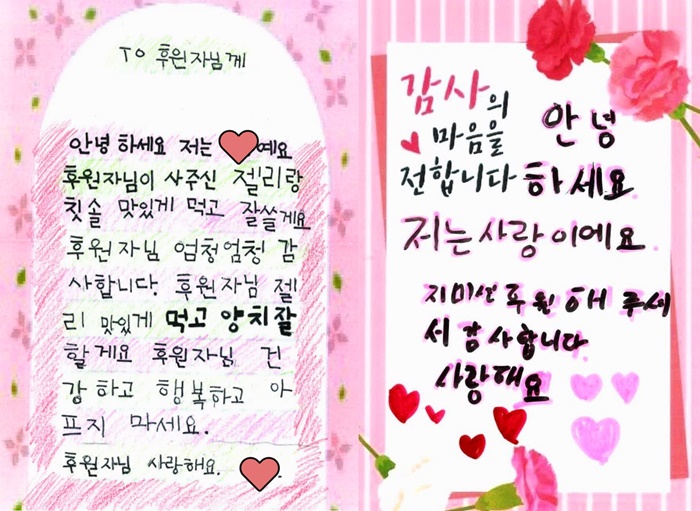 TO 후원자님께
안녕하세요 저는 예요
후원자님이 사주신 젤리랑
칫솔 맛있게 먹고 잘쓸게요
후원자님 엄청엄청 감
사합니다. 후원자님 젤
리 맛있게 먹고 양치잘
할게요 후원자님 건
강하고 행복하고 아
프지 마세요.
후원자님 사랑해요.
감사의
마음을
전합니다
안녕
하세요
저는사랑이에요
후원해 주세
서 감사합니다
사랑해요